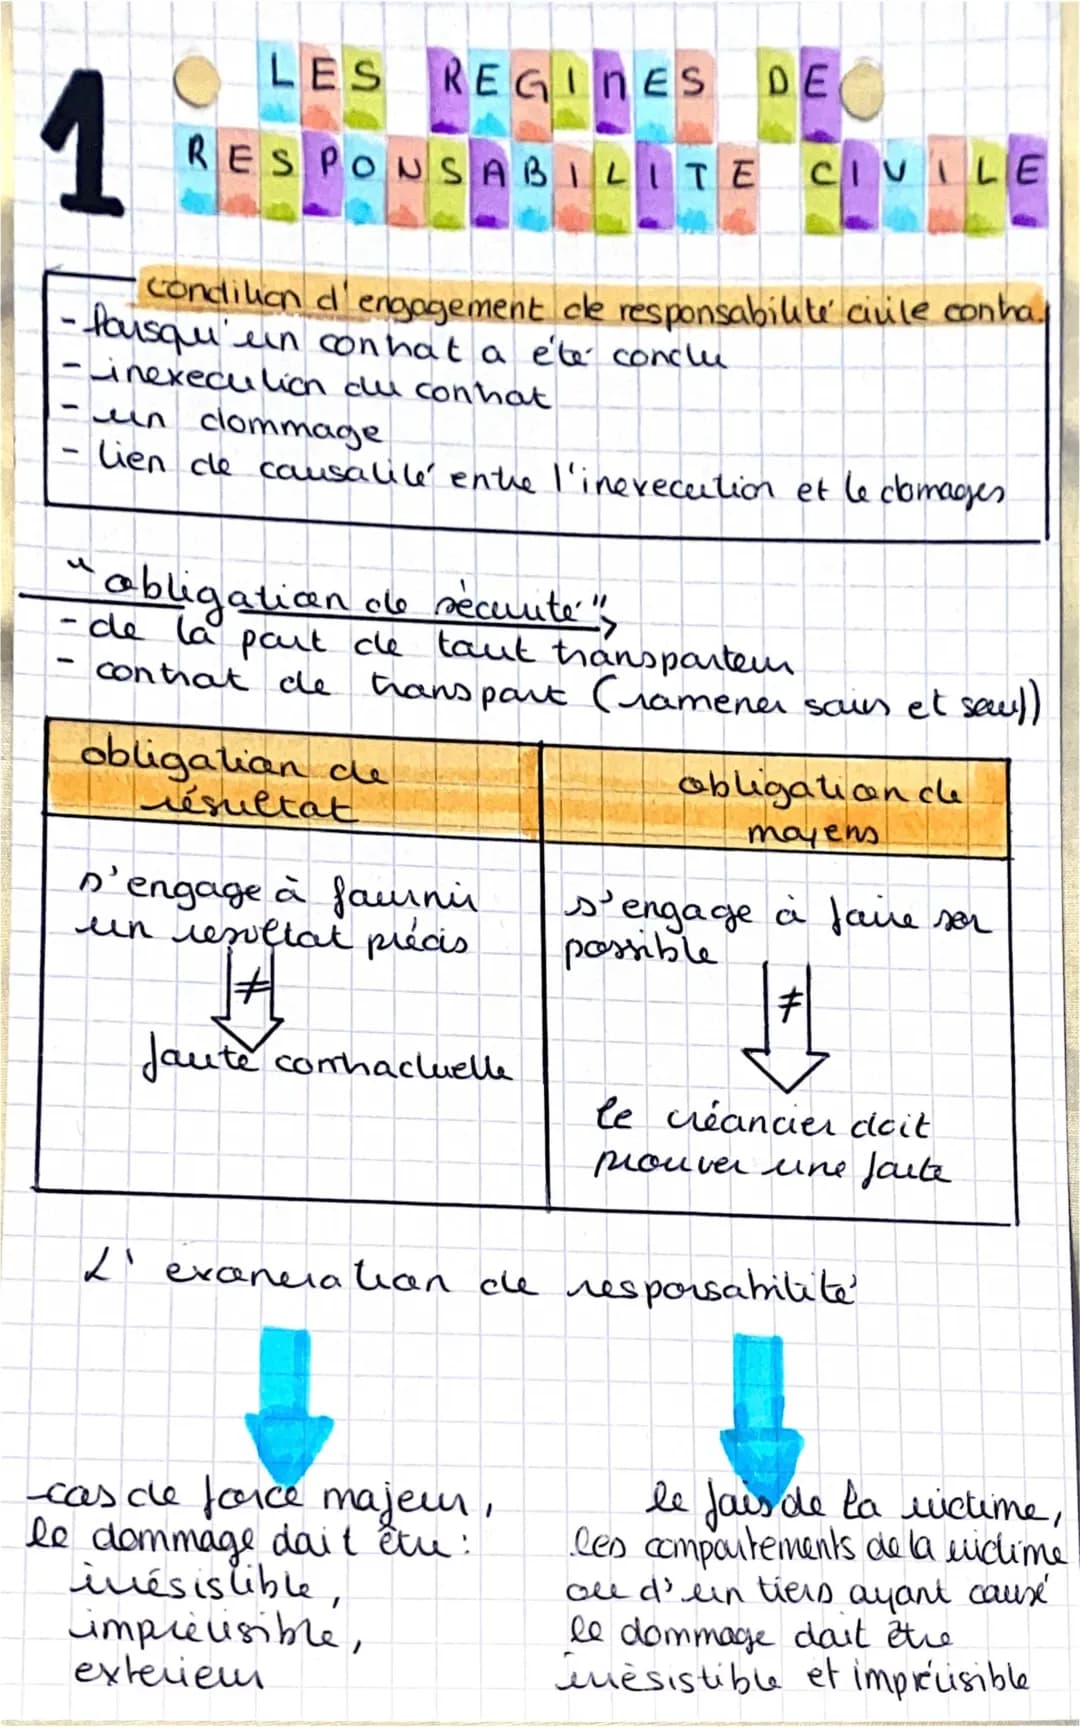 1
LES REGIMES DE
RESPONSABILITE CIVILE
condition d'engagement de responsabilité civile contra.
- lorsqu'un contrat a été conclu
- inexecution du contrat
- un dommage
- lien de causalité entre l'inexecution et le domages
"obligation de sécurité"
- de la part de tout transporteur
- contrat de transport (ramener sain et sauf)
obligation de
résultat
obligation de
moyens
s'engage à fournir
un resultat précis
≠
faute contractuelle
s'engage à faire son
possible
≠
le créancier doit
prouver une faute
L'exoneration de responsabilité
cas de force majeur,
le dommage doit être :
irrésistible,
imprévisible,
exterieur
le fais de la victime,
les comportements de la victime
ou d'un tiers ayant causé
le dommage doit être
irrésistible et imprévisible